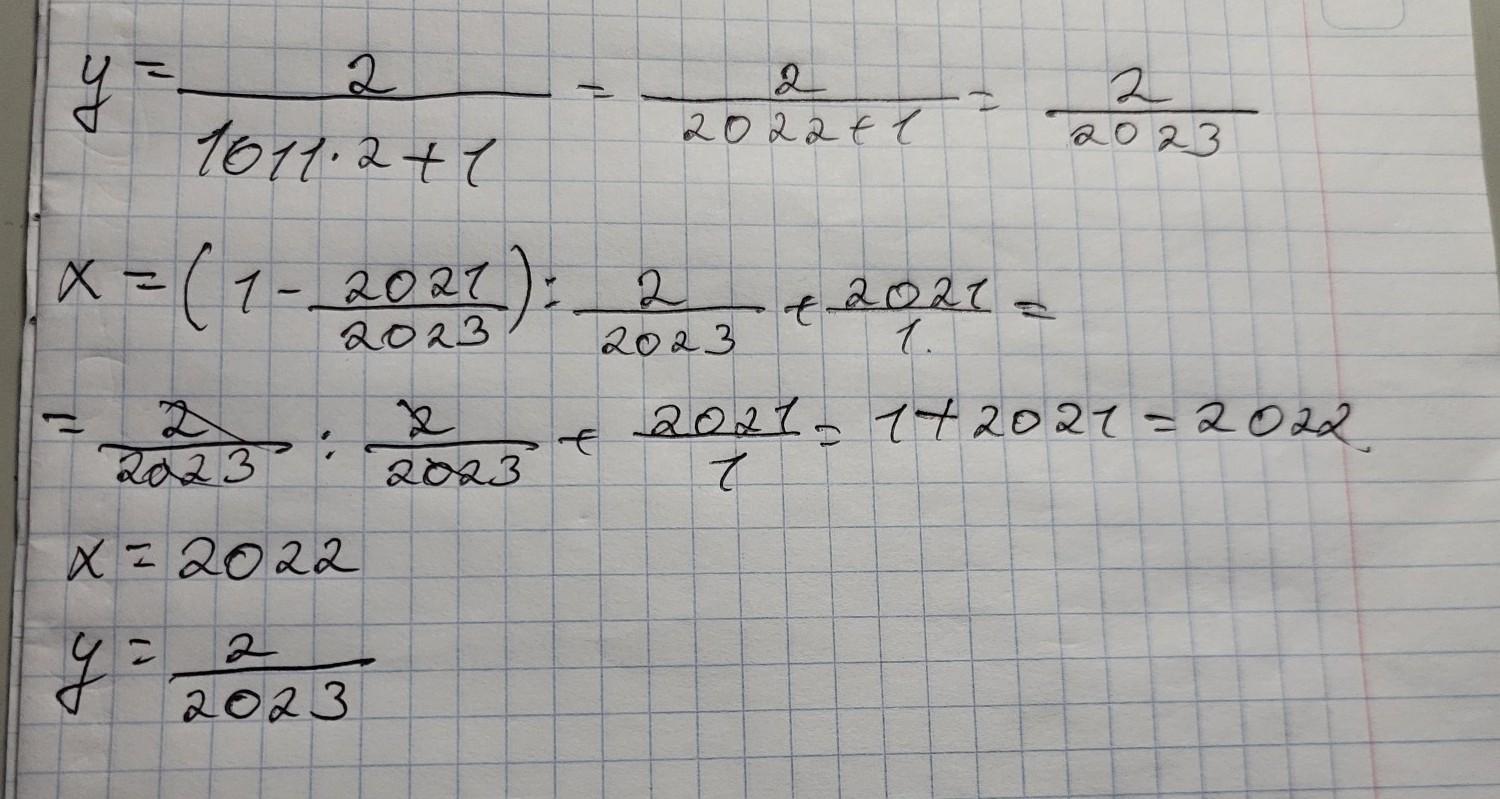 y = 2/(1011·2+1) = 2/(2022+1) = 2/2023
x = (1 - 2021/2023) : 2/2023 + 2021/1. =
= 2/2023 : 2/2023 + 2021/1 = 1+2021 = 2022
x = 2022
y = 2/2023